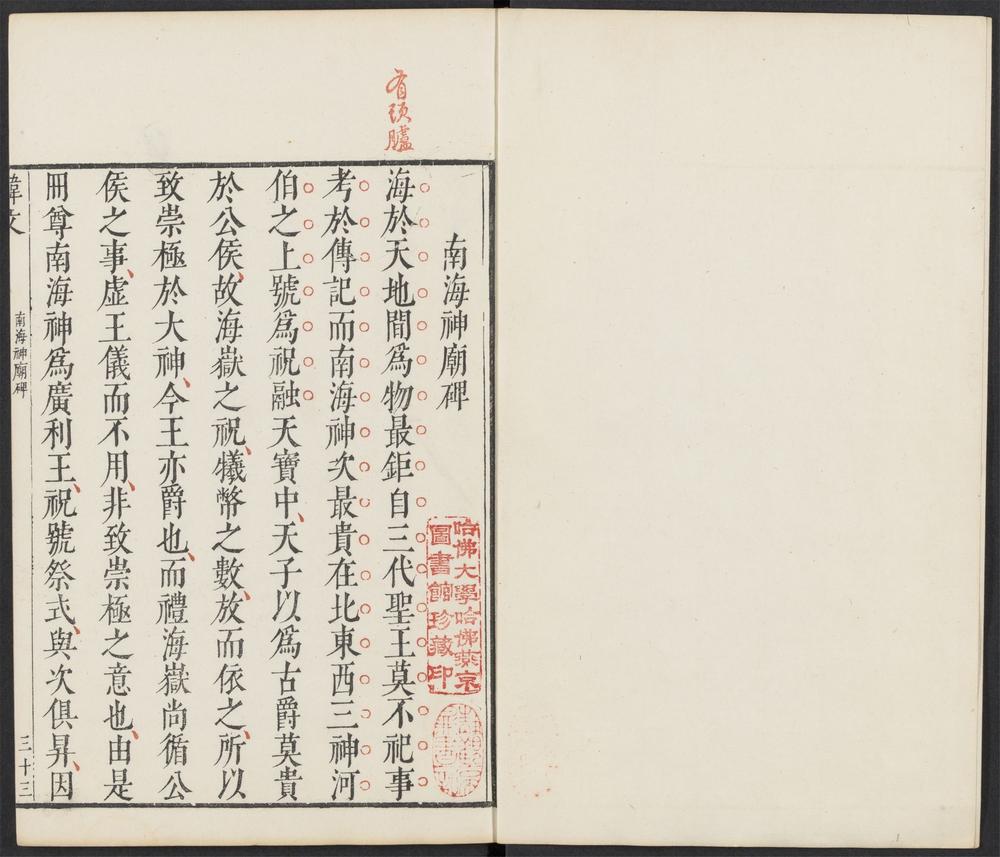 有頭臚
南海神廟碑
海於天地間爲物最鉅自三代聖王莫不祀事
考於傳記而南海神次最貴在北東西三神河
伯之上號爲祝融天寶中、天子以爲古爵莫貴
於公侯、故海嶽之祝、犧幣之數、放而依之、所以
致崇極於大神、今王亦爵也、而禮海嶽尚循公
侯之事、虛王儀而不用、非致崇極之意也、由是
冊尊南海神爲廣利王、祝號祭式、與次俱昇、因
韓文
南海神廟碑
三十三
哈佛大學哈佛燕京
圖書館珍藏印